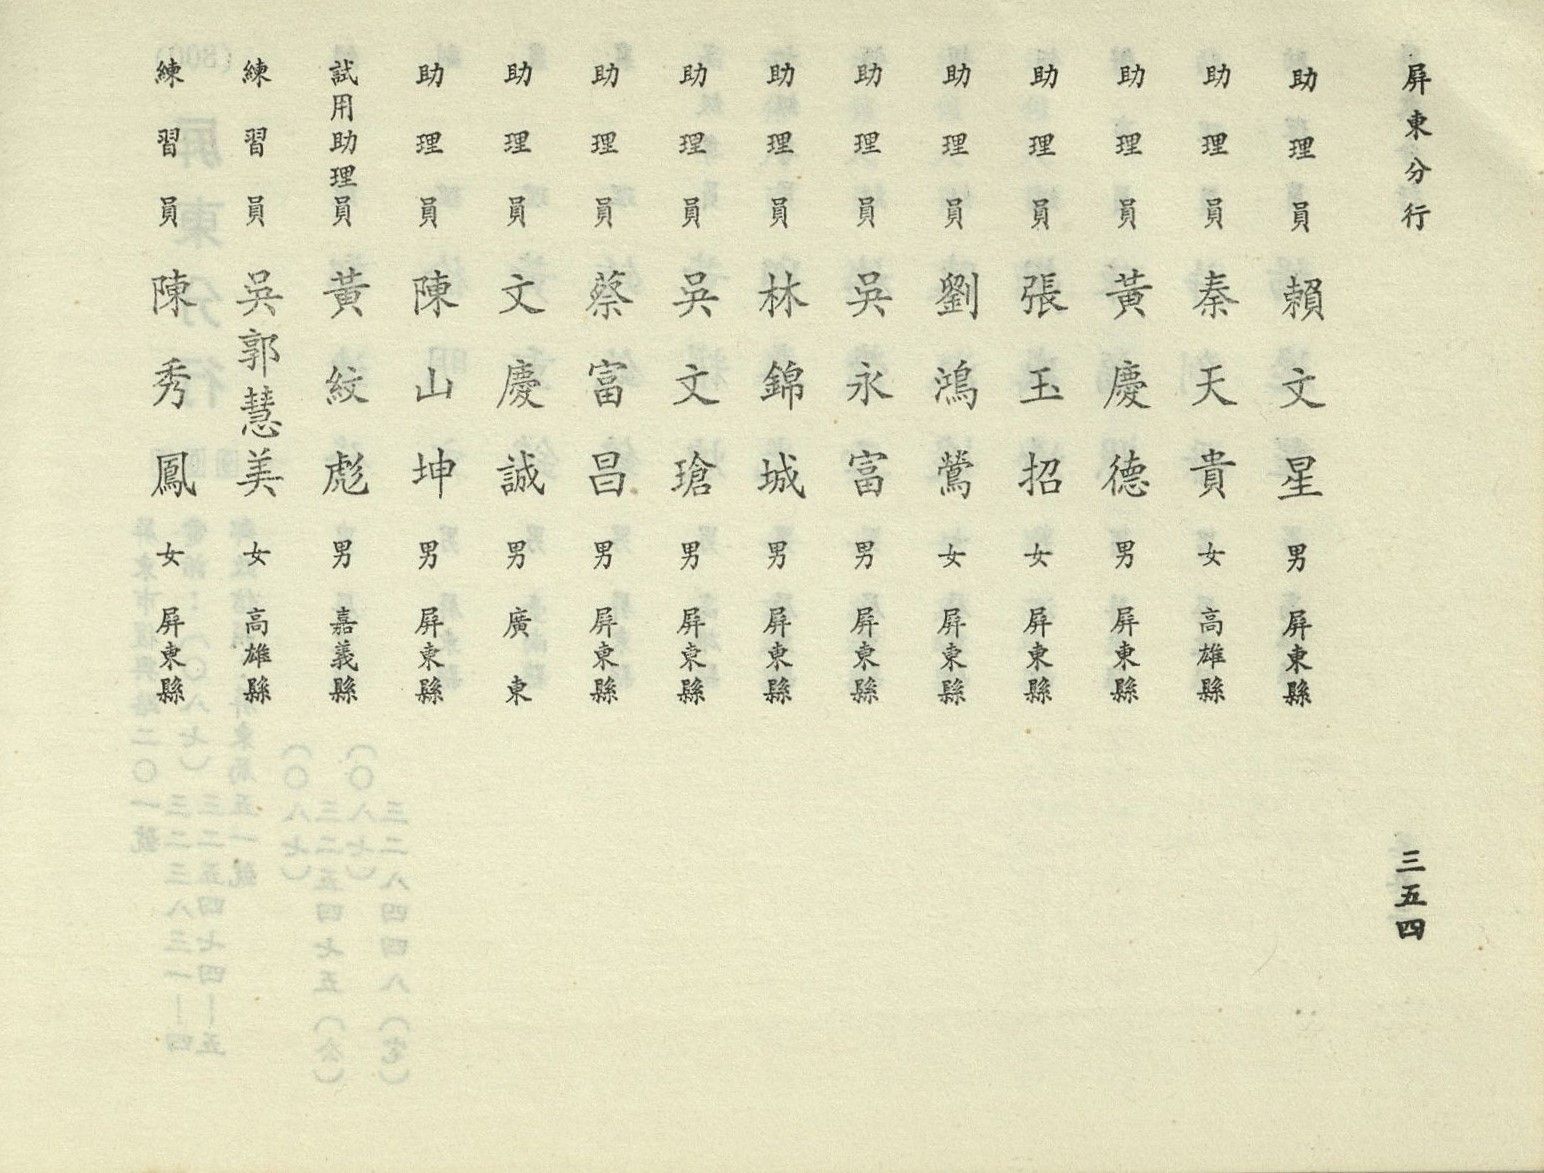 屏東分行 三五四
助理員 賴文星 男 屏東縣
助理員 秦天貴 女 高雄縣
助理員 黃慶德 男 屏東縣
助理員 張玉招 女 屏東縣
助理員 劉鴻鶯 女 屏東縣
助理員 吳永富 男 屏東縣
助理員 林錦城 男 屏東縣
助理員 吳文瑲 男 屏東縣
助理員 蔡富昌 男 屏東縣
助理員 文慶誠 男 廣東
助理員 陳山坤 男 屏東縣
試用助理員 黃紋彪 男 嘉義縣
練習員 吳郭慧美 女 高雄縣
練習員 陳秀鳳 女 屏東縣